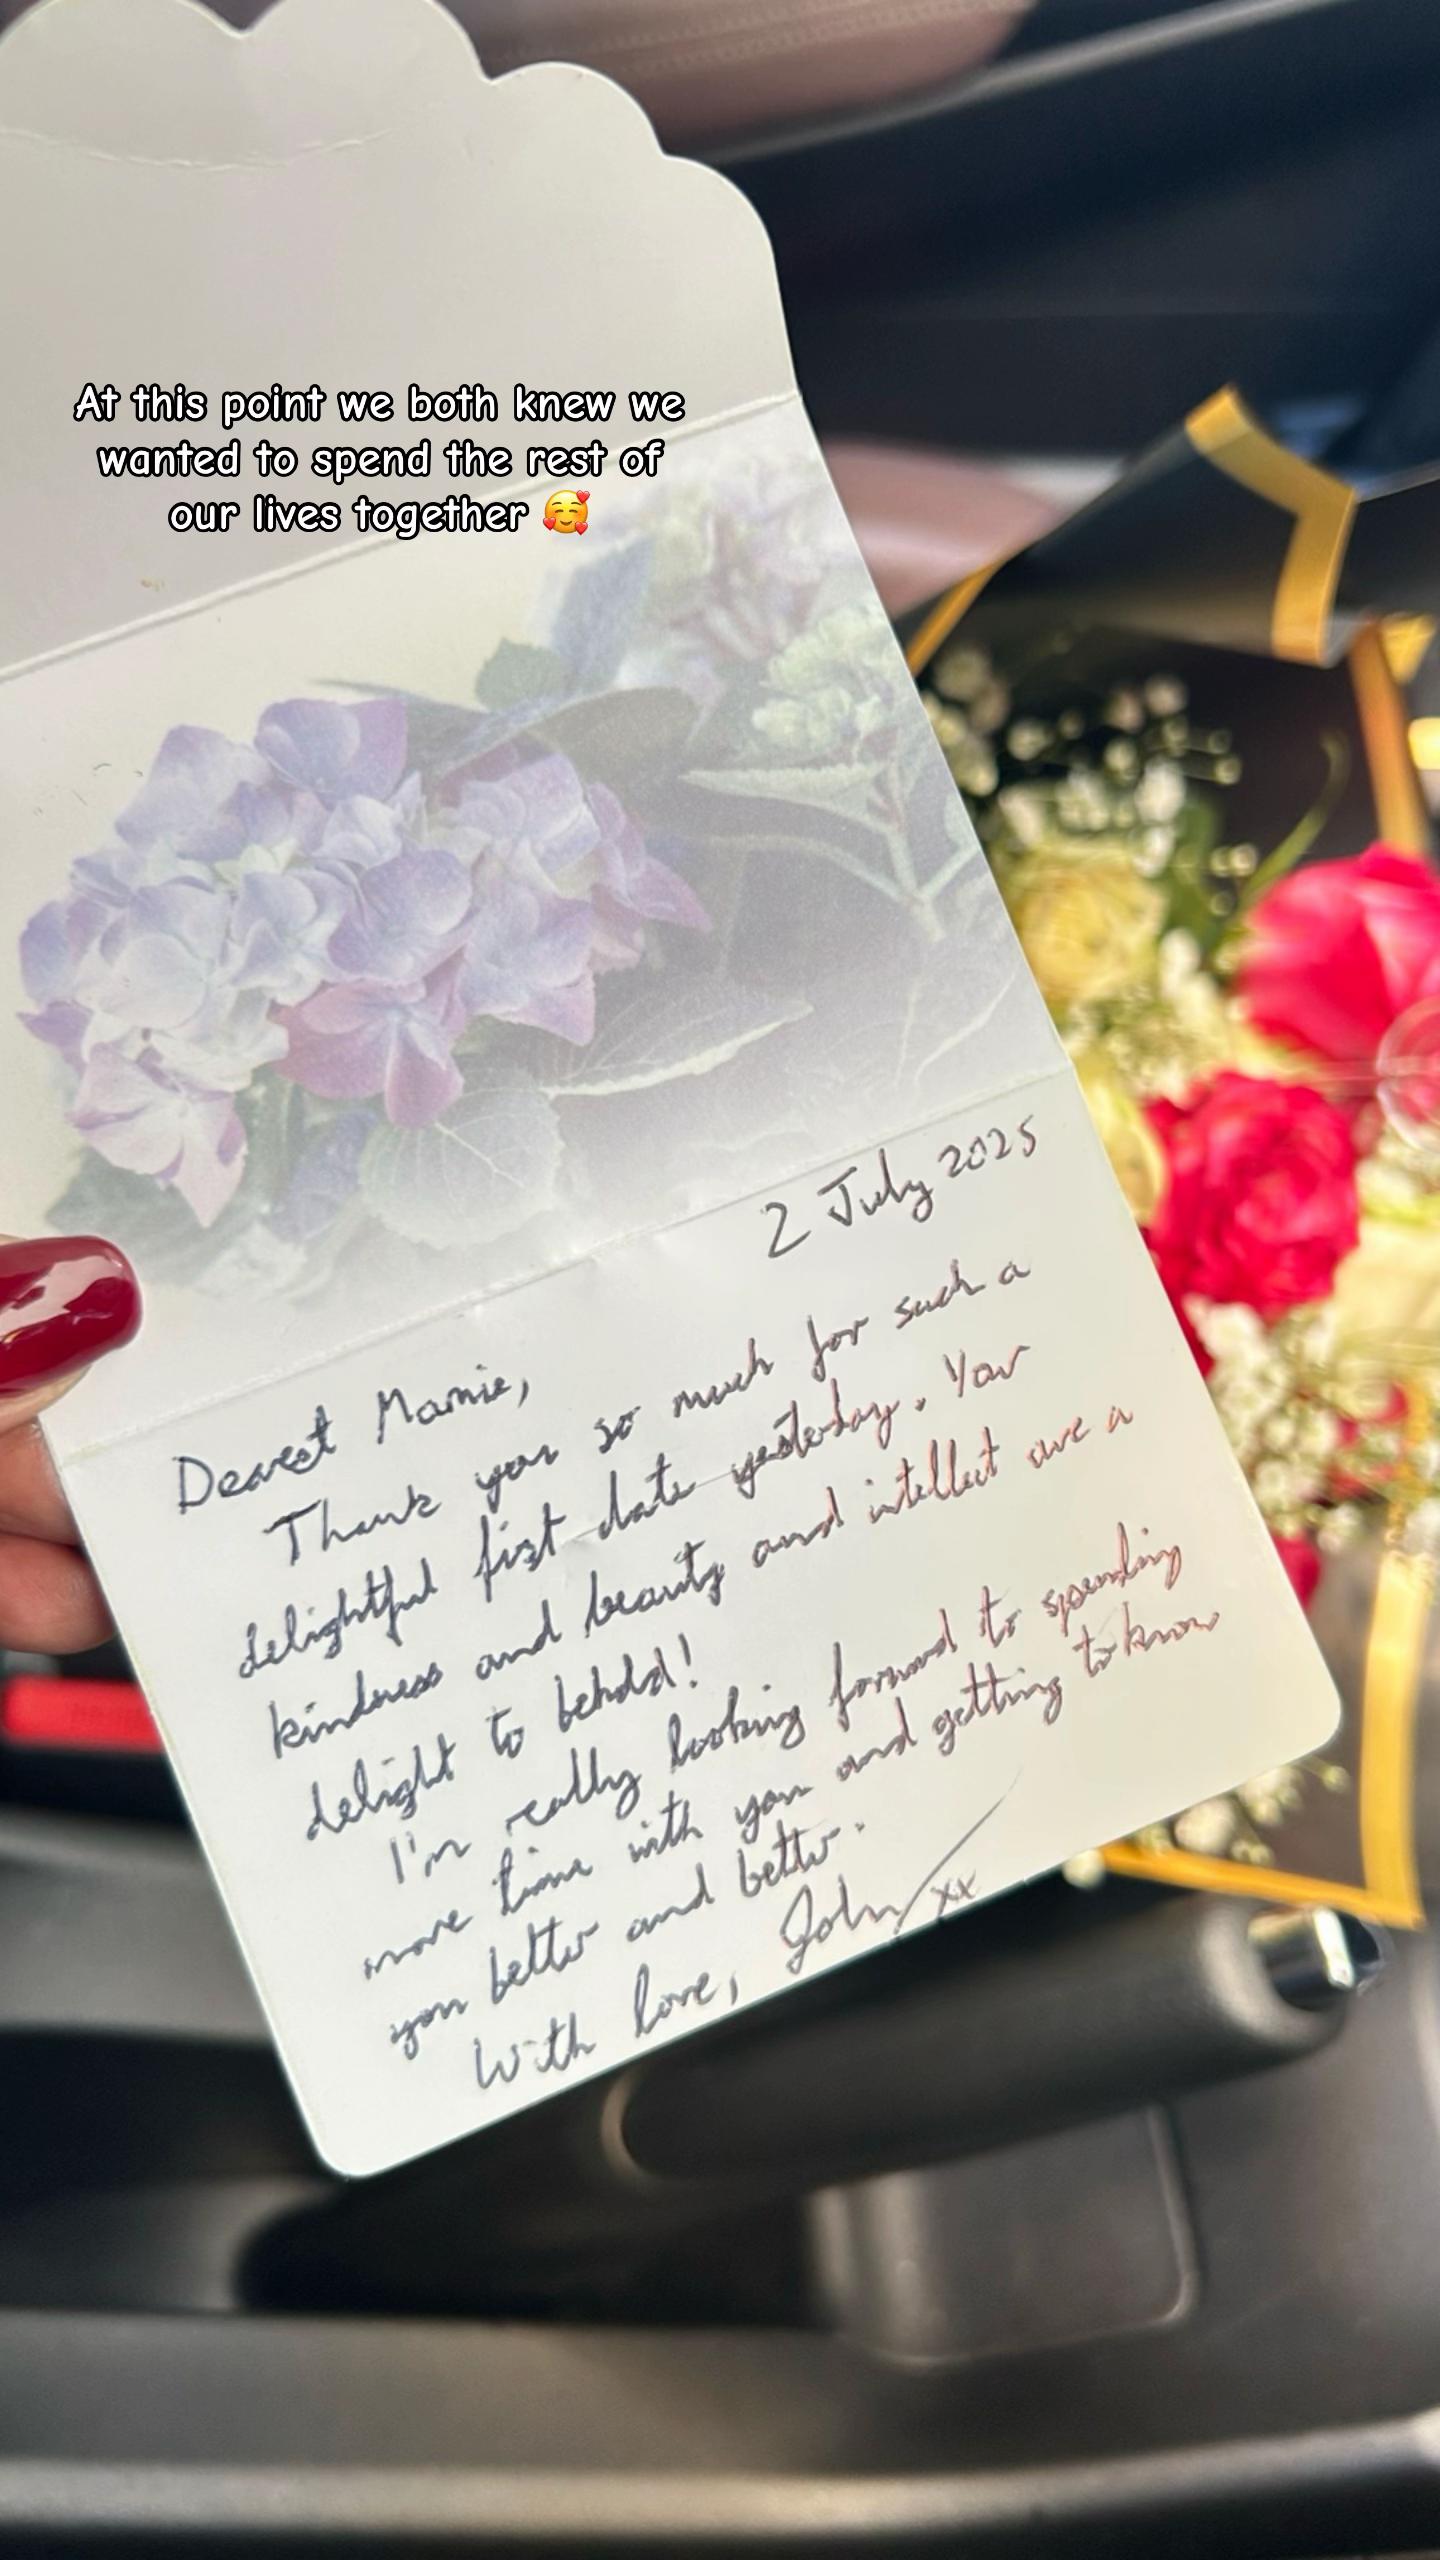 At this point we both knew we
wanted to spend the rest of
our lives together 🥰
2 July 2025
Dearest Mamie,
Thank you so much for such a
delightful first date yesterday. Your
kindness and beauty and intellect are a
delight to behold!
I'm really looking forward to spending
more time with you and getting to know
you better and better.
With love, John xx